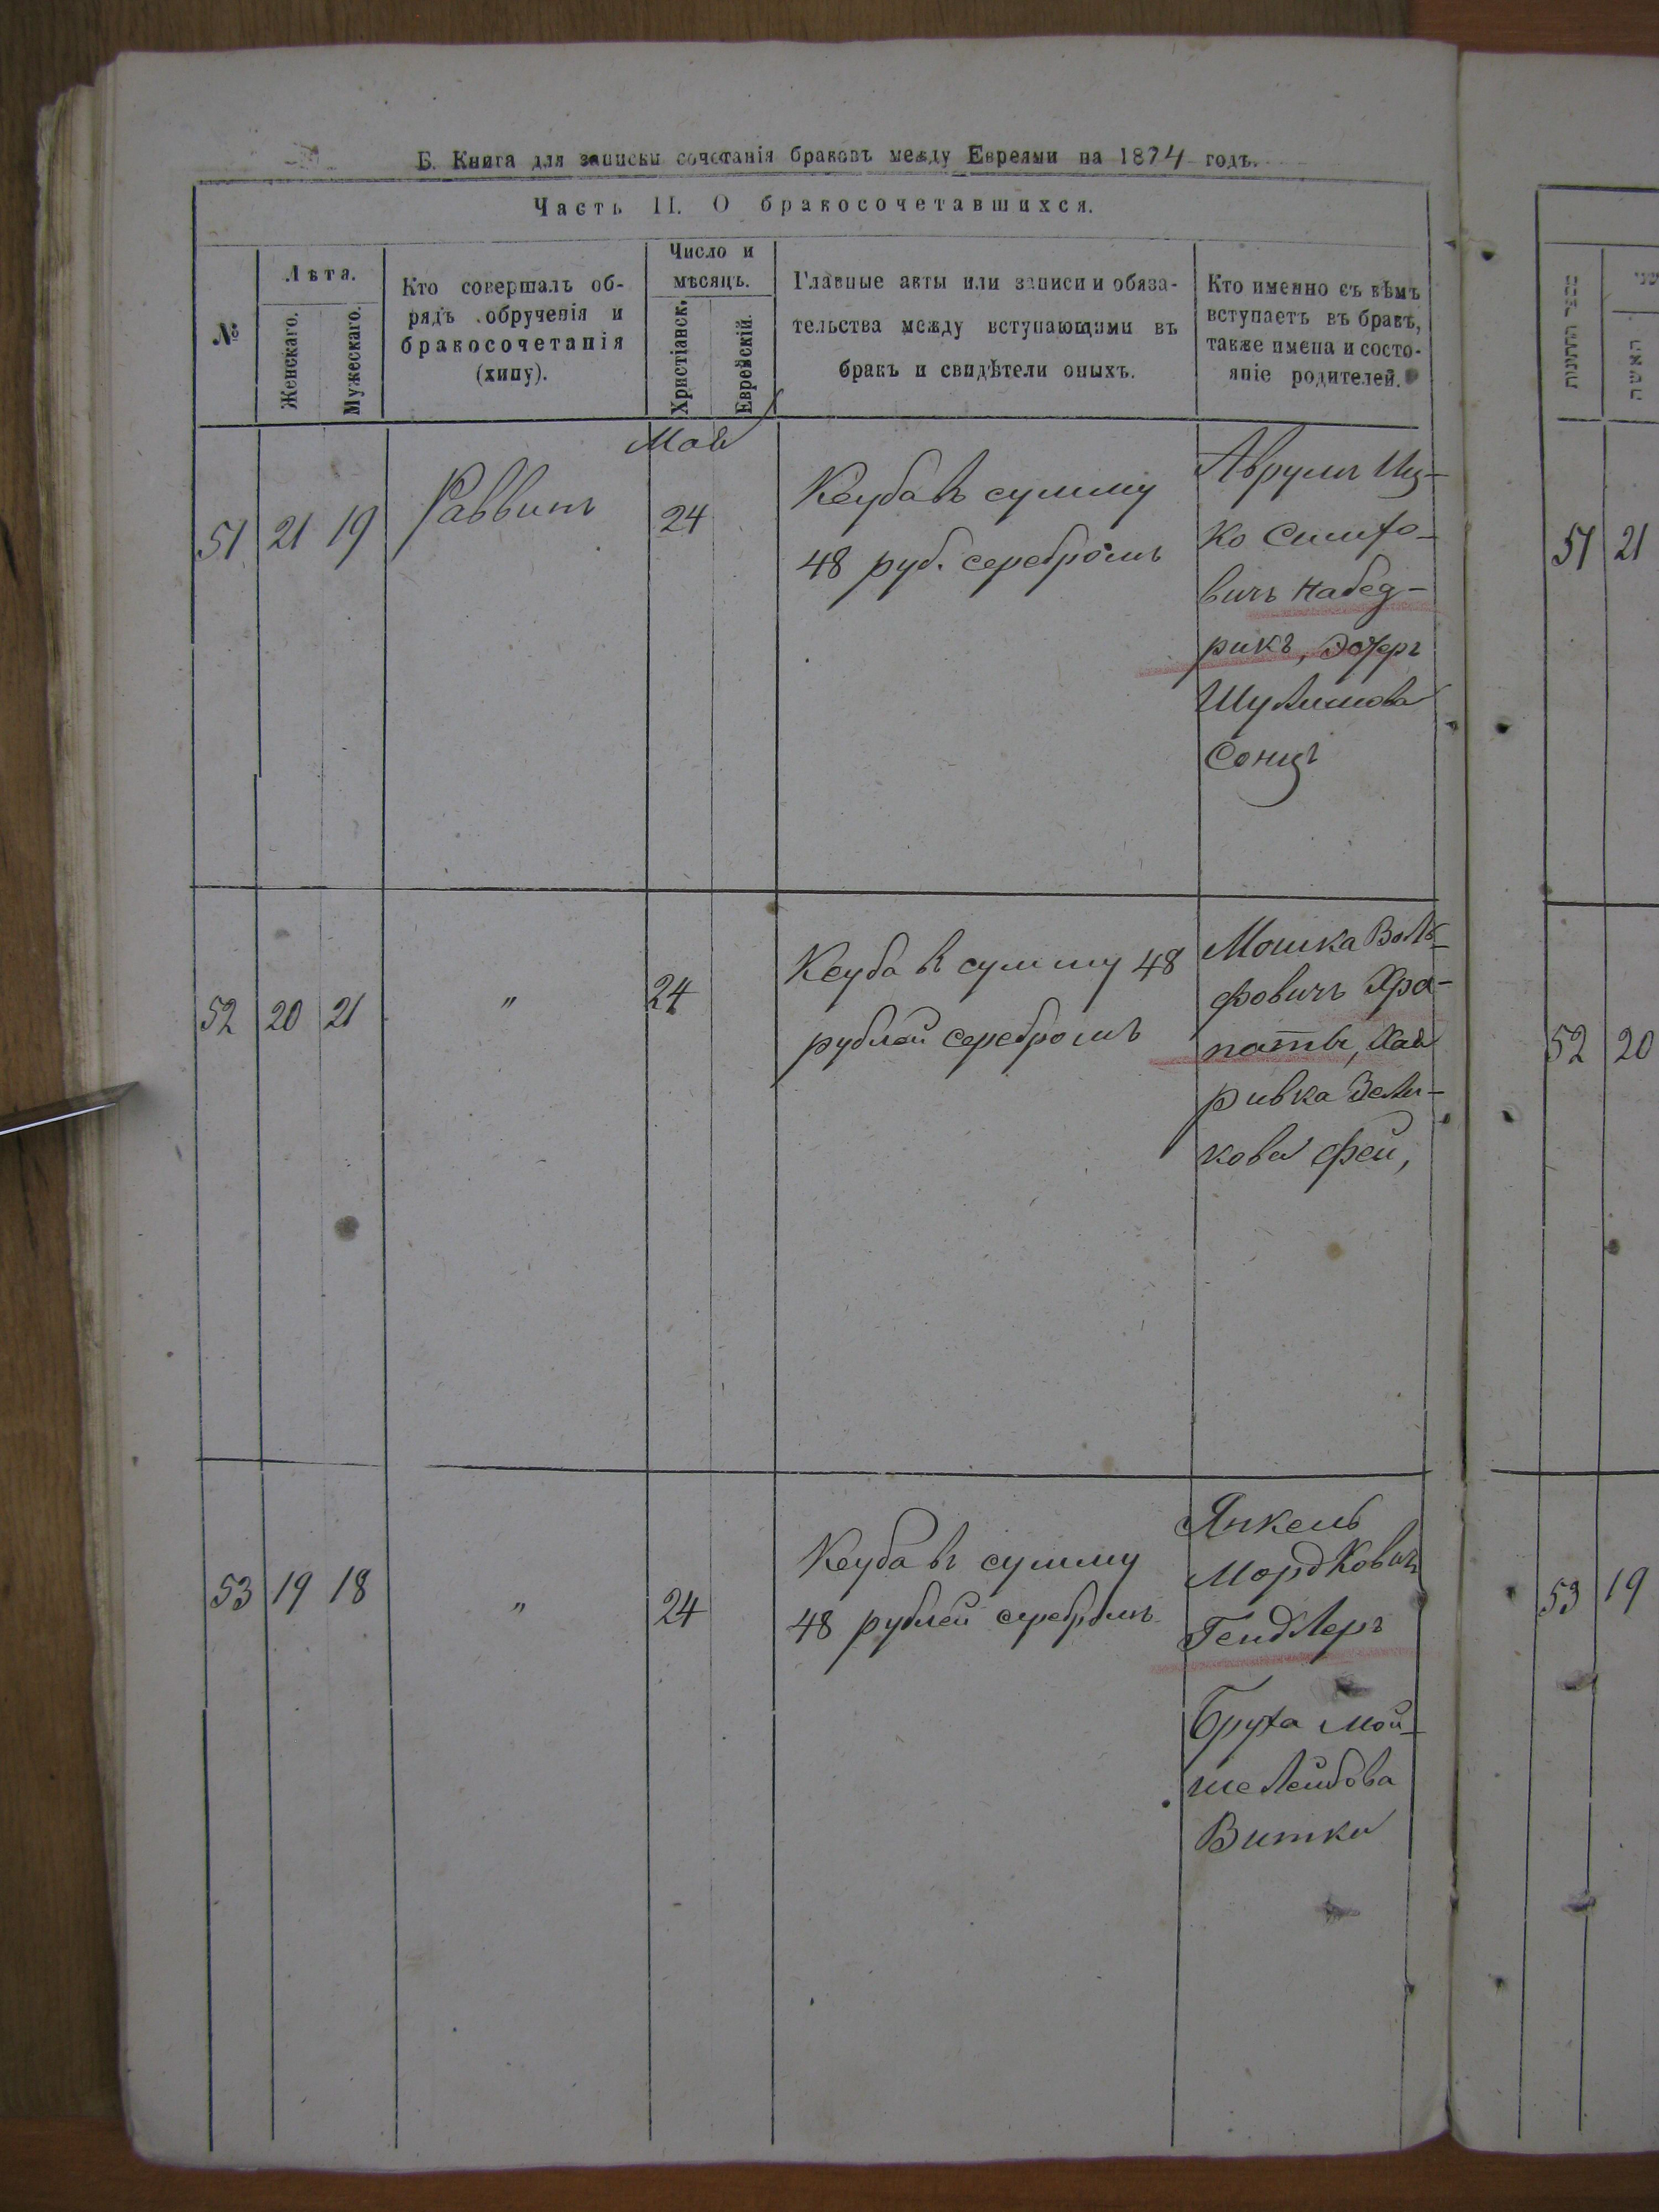 Б. Книга для записки сочетанія браковъ между Евреями на 1874 годъ.
Часть II. О бракосочетавшихся.
№
Лѣта.
Женскаго.
Мужескаго.
Кто совершалъ об-
рядъ обрученія и
бракосочетанія
(хипу).
Число и
мѣсяцъ.
Христіанск.
Еврейскій.
Главные акты или записи и обяза-
тельства между вступающими въ
бракъ и свидѣтели оныхъ.
Кто именно съ кѣмъ
вступаетъ въ бракъ,
также имена и состо-
яніе родителей.
Мая
51 21 19 Раввинъ 24
Кеуба въ сумму
48 руб. серебромъ
Аврумъ Иц-
ко Симхо-
вичъ Набед-
рикъ, Эстеръ
Шулимова
Сонцъ
52 20 21 " 24
Кеуба въ сумму 48
рублей серебромъ
Мошка Воль-
фовичъ Хра-
паты, Хая
Ривка Зели-
кова Фей,
53 19 18 " 24
"
Кеуба въ сумму
48 рублей серебромъ
Янкель
Мордковичъ
Гендлеръ
Бруха Мой-
ше Лейбова
Витки
האשה
51 21
52 20
53 19